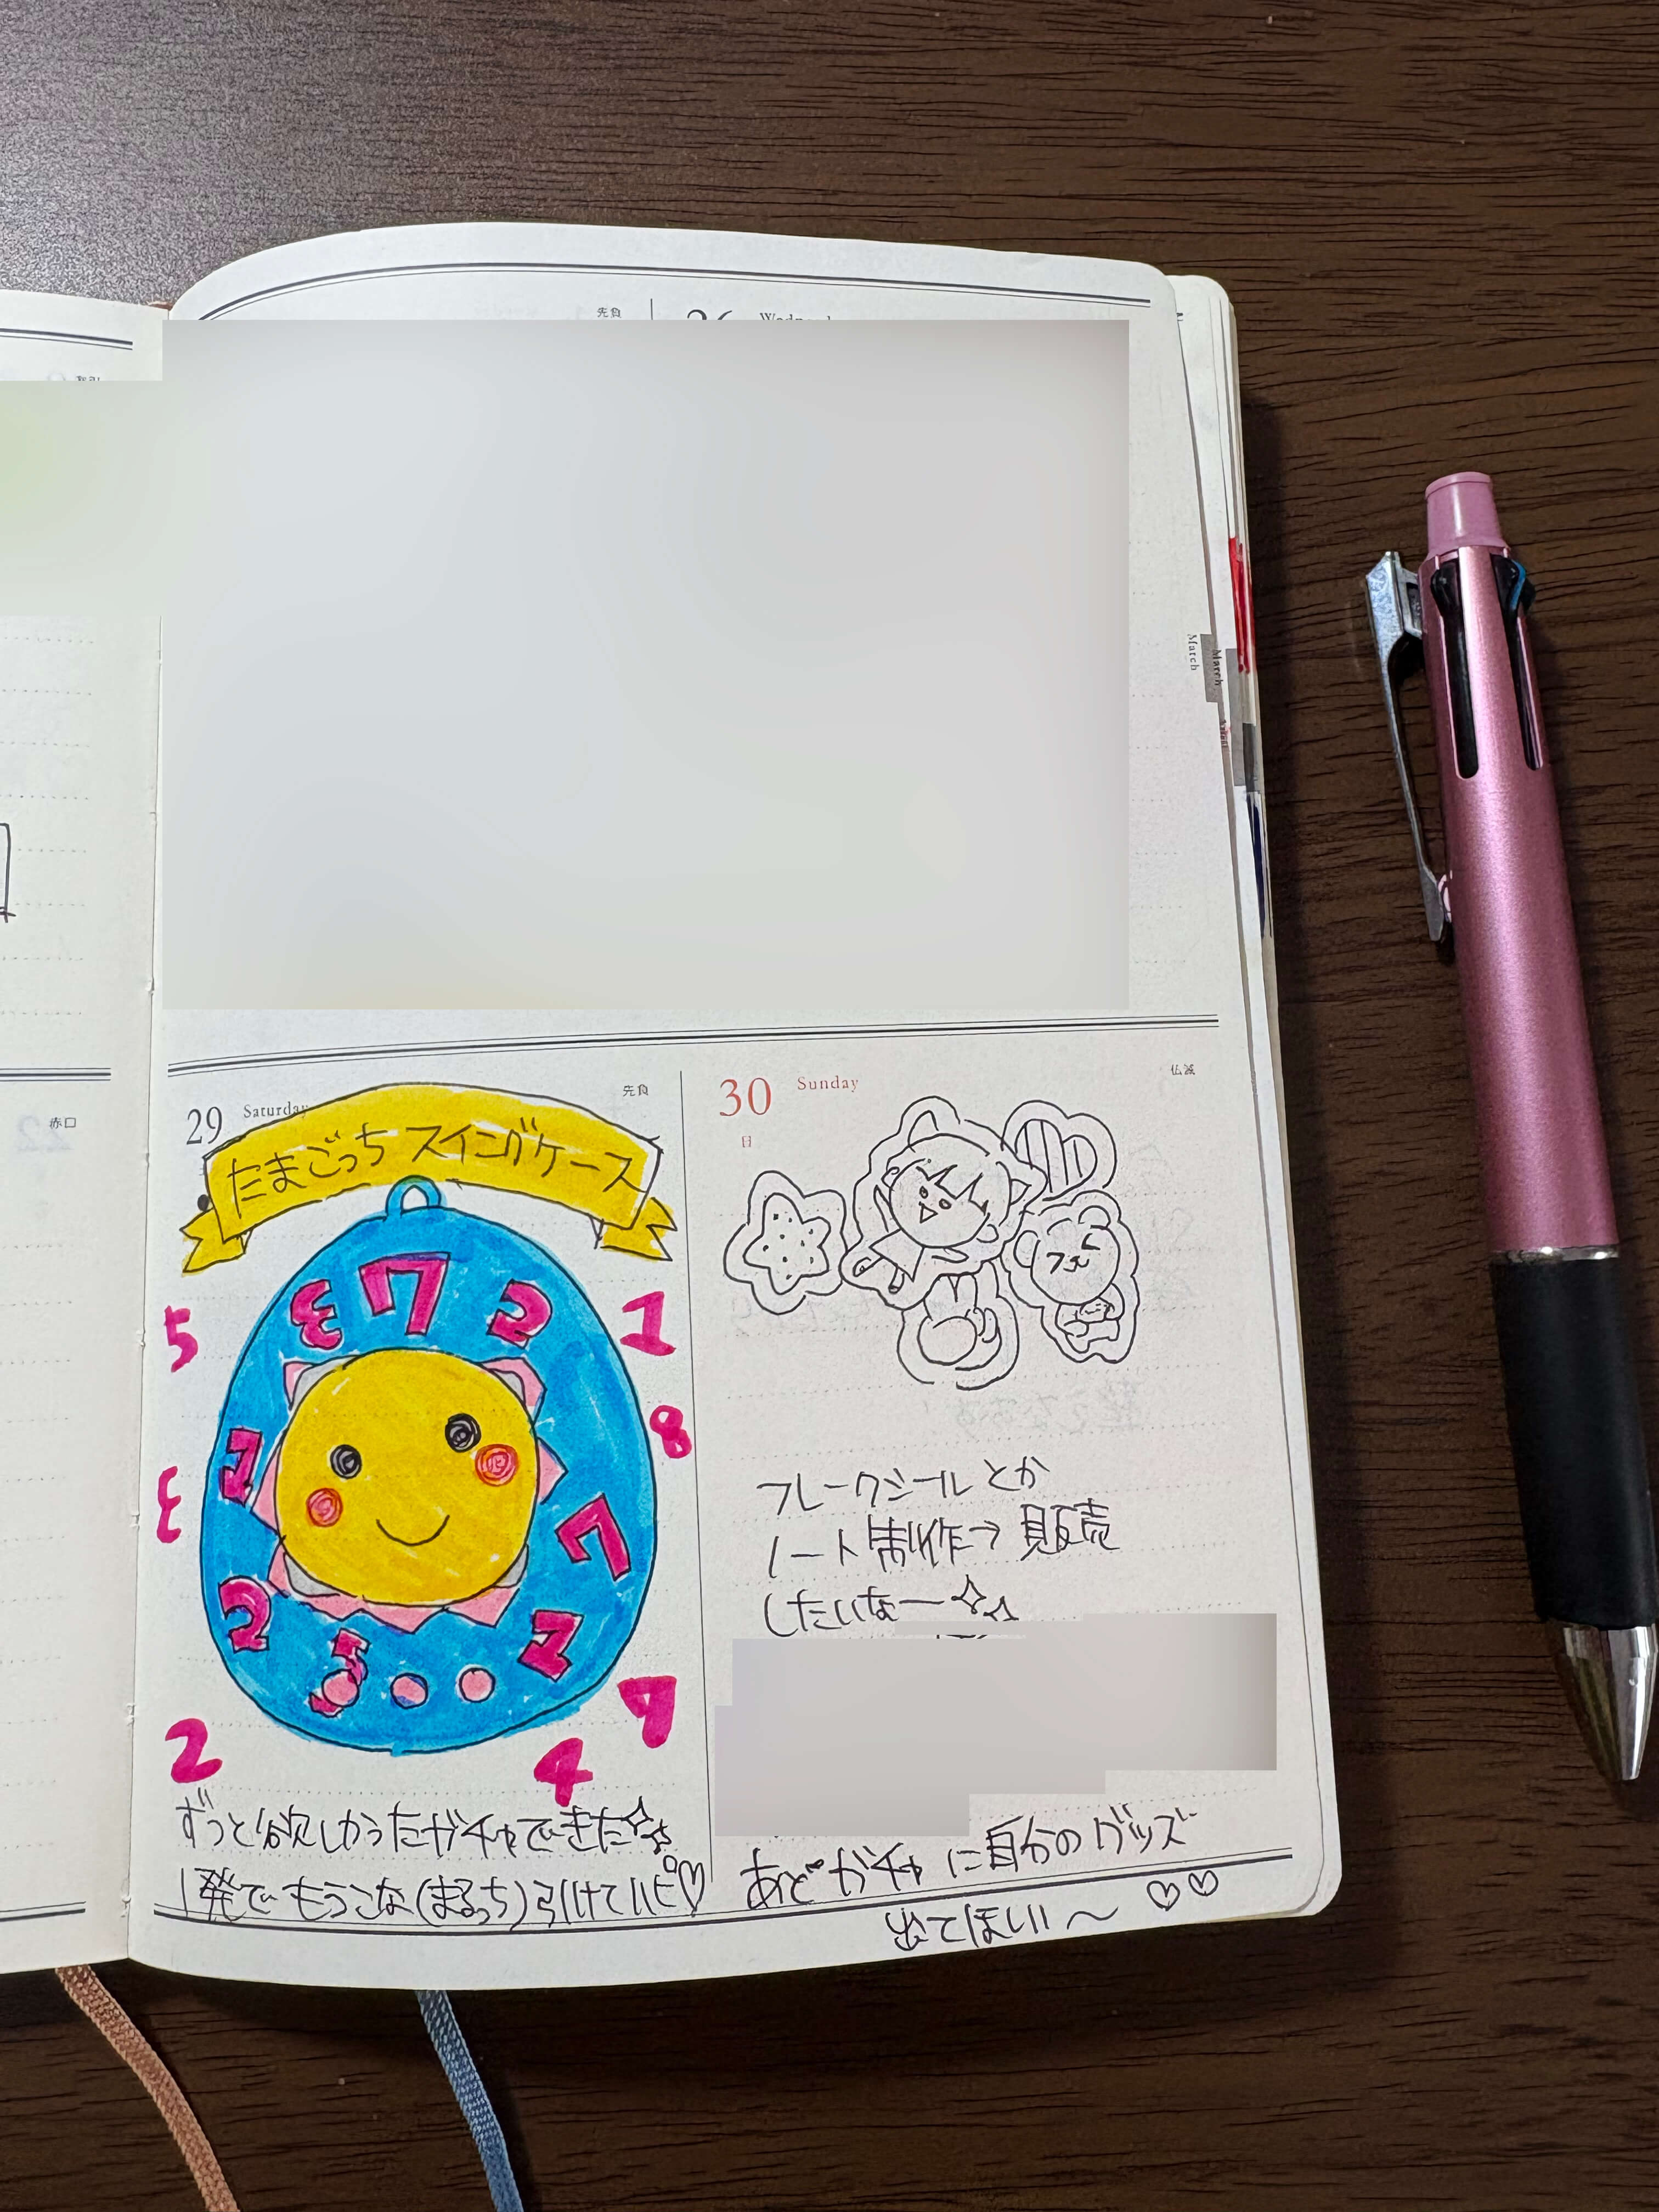 先負
赤口
March
March
29 Saturday 先負
たまごっち スイングケース
5 3 7 2 1
8
3
2 5 1
2 4 7
ずっと欲しかったガチャできた
1発でもうこな(まるっち)引けてハピ♡
30 Sunday 仏滅
日
フレークシールとか
ノート制作→販売
したいなー
あとガチャに自分のグッズ
出てほしい〜 ♡♡